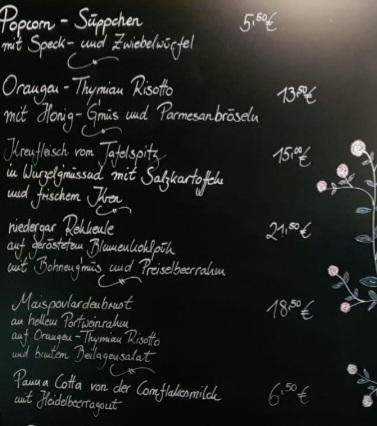 Popcorn - Süppchen 5,50€
mit Speck- und Zwiebelwürfel
Orangen - Thymian Risotto 13,50€
mit Honig-G'müs und Parmesanbröseln
Krenfleisch vom Tafelspitz 15,00€
in Wurzelgmüssud mit Salzkartoffeln
und frischem Kren
niedergar Rehkeule 21,50€
auf geröstetem Blumenkohlpüh
mit Bohneng'müs und Preiselbeerrahm
Maispoulardenbrust 18,50€
an hellem Portweinrahm
auf Orangen-Thymian Risotto
und buntem Beilagensalat
Panna Cotta von der Cornflakesmilch 6,50€
mit Heidelbeerragout